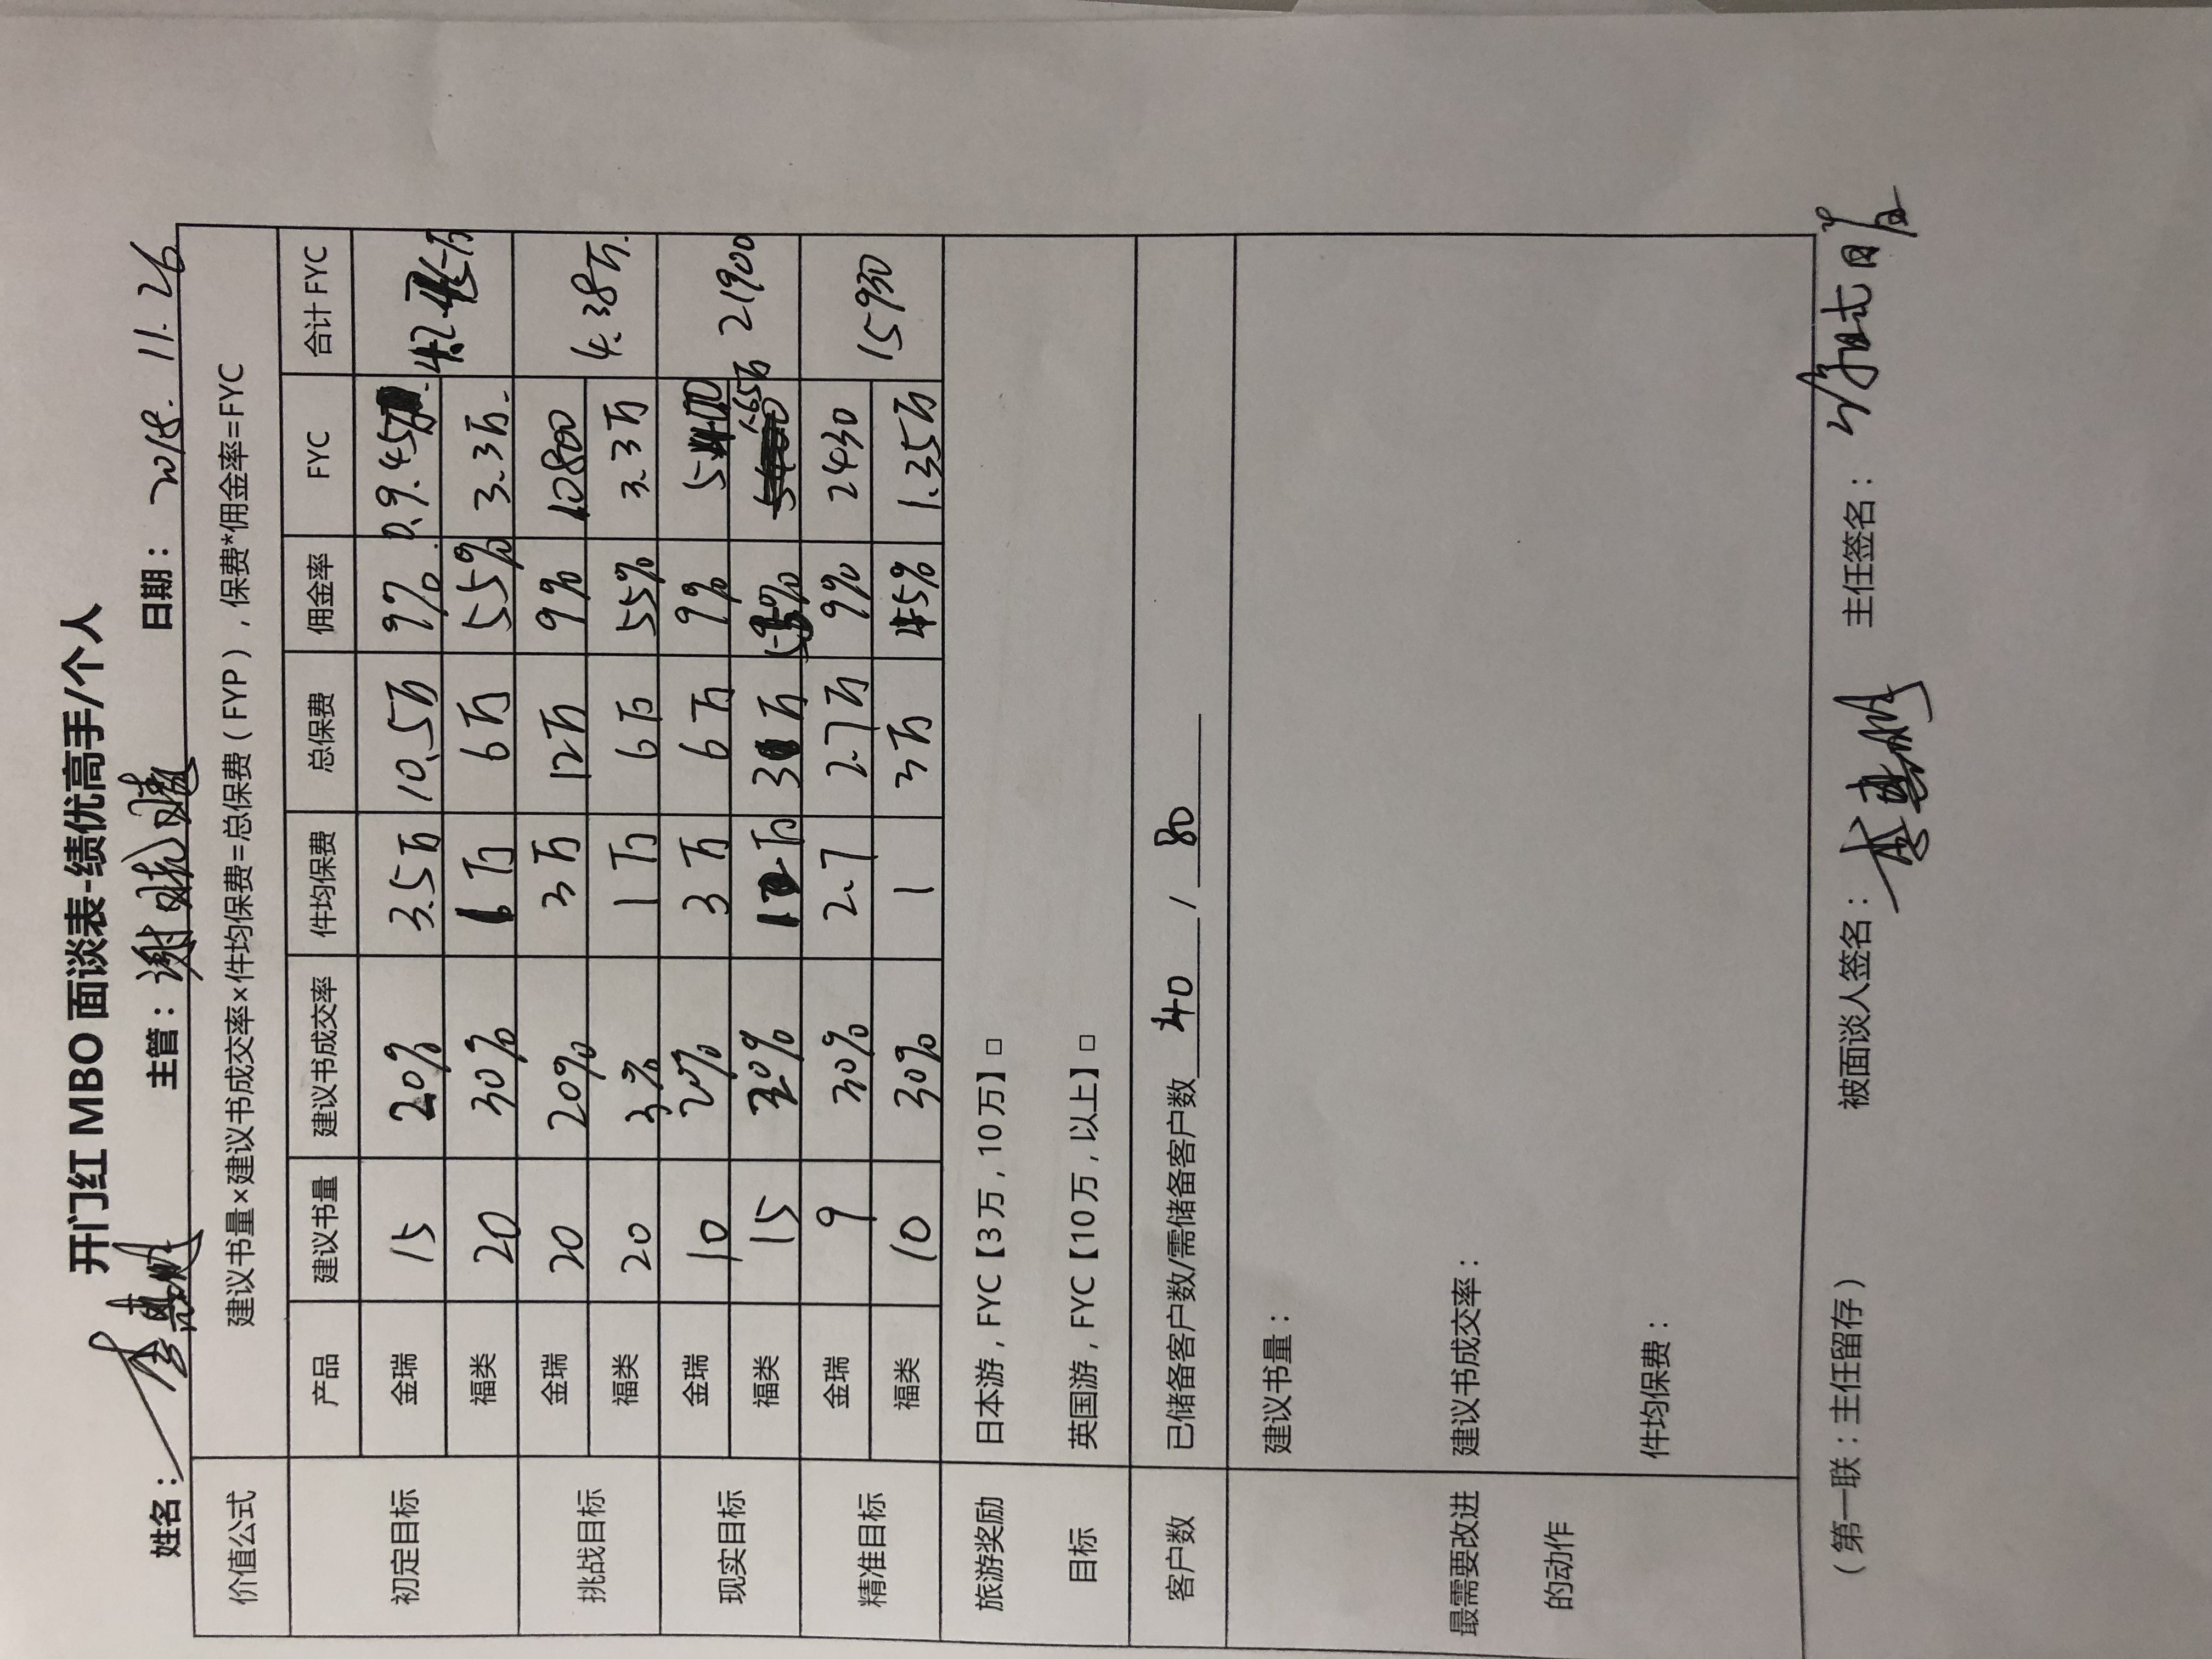 开门红 MBO 面谈表-绩优高手/个人
姓名： 主管：谢晓晴 日期：2018.11.26
价值公式 建议书量×建议书成交率×件均保费=总保费（FYP），保费*佣金率=FYC
产品 建议书量 建议书成交率 件均保费 总保费 佣金率 FYC 合计 FYC
初定目标 金瑞 15 20% 3.5万 10.5万 9% 0.945 4.2万
福类 20 30% 1万 6万 55% 3.3万
挑战目标 金瑞 20 20% 3万 12万 9% 10800 4.38万
福类 20 3% 1万 6万 55% 3.3万
现实目标 金瑞 10 20% 3万 6万 9% 5400 21900
福类 15 20% 1万 3万 55% 1.65万
精准目标 金瑞 9 30% 2.7 2.7万 9% 2430 15930
福类 10 30% 1 3万 45% 1.35万
旅游奖励 日本游，FYC【3万，10万】□
目标 英国游，FYC【10万，以上】□
客户数 已储备客户数/需储备客户数 40 / 80
建议书量：
最需要改进 建议书成交率：
的动作
件均保费：
（第一联：主任留存） 被面谈人签名： 主任签名：